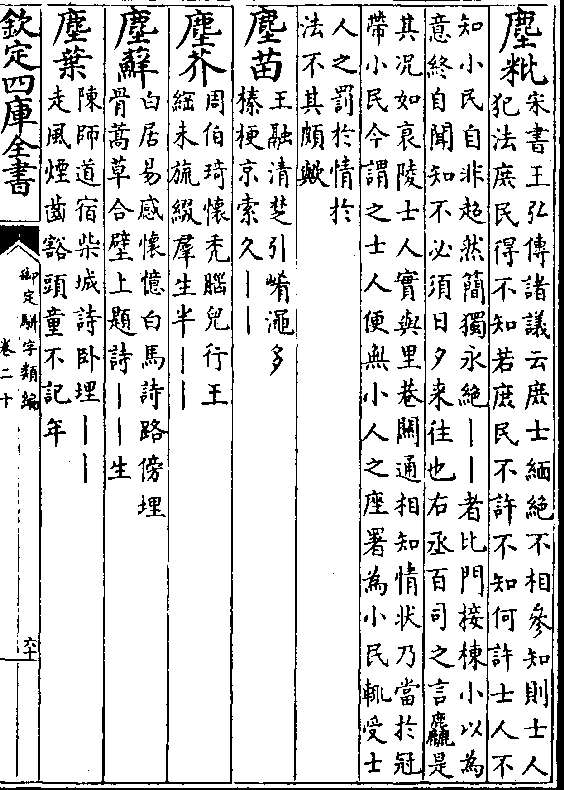 塵粃宋書王弘傳諸議云庶士緬絶不相參知則士人
犯法庶民得不知若庶民不許不知何許士人不
知小民自非超然簡獨永絶丨丨者比門接棟小以為
意終自聞知不必須日夕来往也右丞百司之言麤是
其况如衰陵士人實與里巷關通相知情状乃當於冠
帶小民今謂之士人便無小人之座署為小民輒受士
人之罰於情於
法不其頗歟
塵苗王融清楚引崤澠多
榛梗京索久丨丨
塵芥周伯琦懷秃腦兒行王
綱未旒綴羣生半丨丨
塵蘚白居易感懷憶白馬詩路傍埋
骨蒿草合壁上題詩丨丨生
塵葉陳師道宿柴城詩卧埋丨丨
走風煙齒豁頭童不記年
欽定四庫全書
御定駢字類編
卷二十
六十